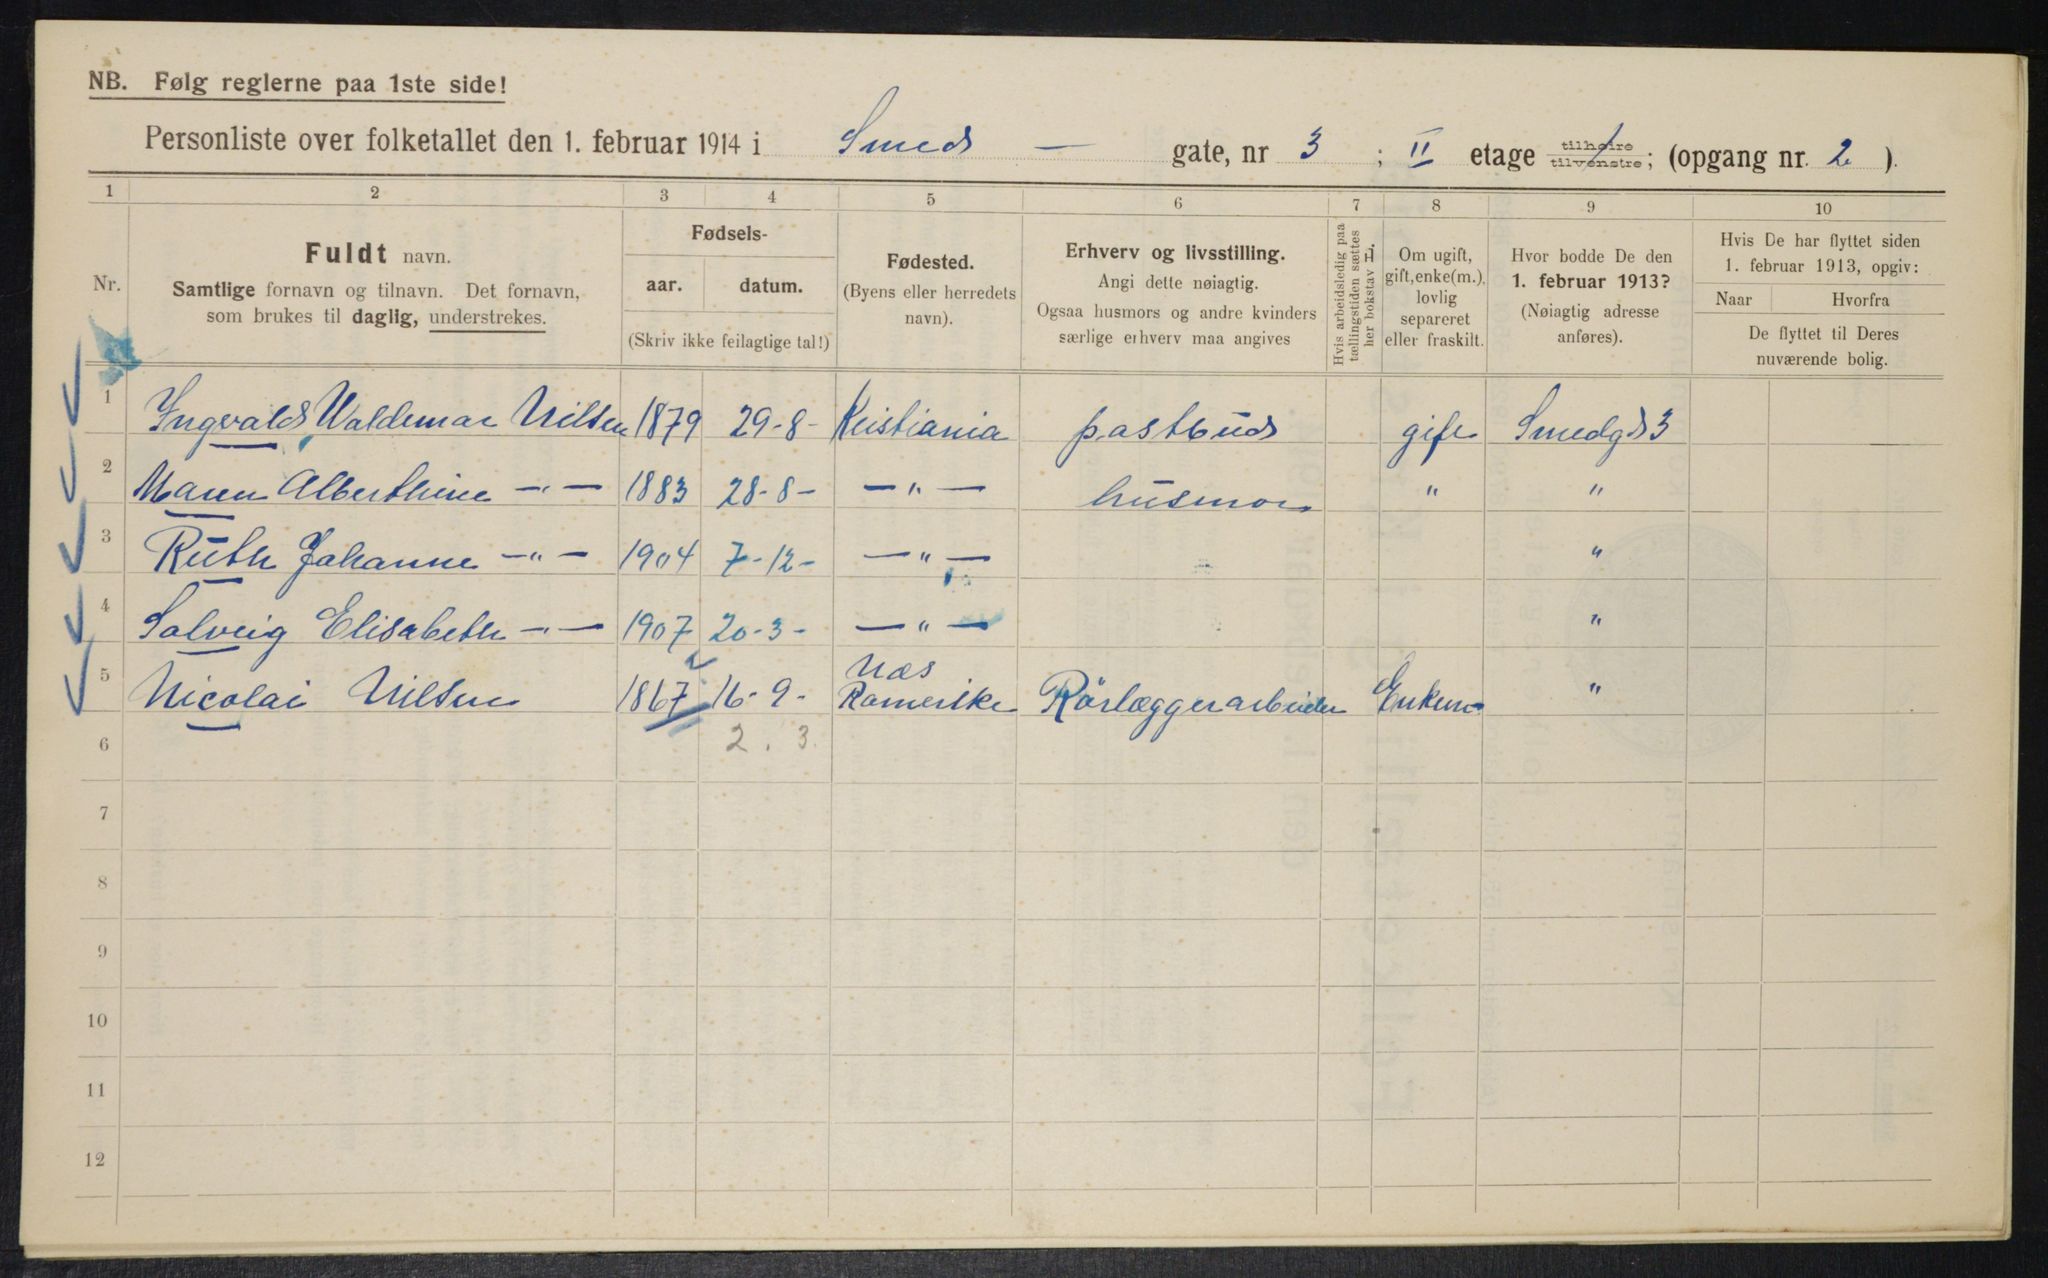 NB. Følg reglerne paa 1ste side!
Personliste over folketallet den 1. februar 1914 i Smeds — gate, nr 3 ; II etage tilhøire tilvenstre; (opgang nr. 2 ).
1 2 3 4 5 6 7 8 9 10
Nr.
Fuldt navn.
Samtlige fornavn og tilnavn. Det fornavn,
som brukes til daglig, understrekes.
Fødsels-
aar. datum.
(Skriv ikke feilagtige tal!)
Fødested.
(Byens eller herredets
navn).
Erhverv og livsstilling.
Angi dette nøiagtig.
Ogsaa husmors og andre kvinders
særlige erhverv maa angives
Hvis arbeidsledig paa
tællingstiden sættes
her bokstav H.
Om ugift,
gift, enke(m.),
lovlig
separeret
eller fraskilt.
Hvor bodde De den
1. februar 1913?
(Nøiagtig adresse
anføres).
Hvis De har flyttet siden
1. februar 1913, opgiv:
Naar Hvorfra
De flyttet til Deres
nuværende bolig.
1 Yngvald Waldemar Nilsen 1879 29-8- Kristiania postbud gift Smedgd 3
2 Maren Alberthine —"— 1883 28-8- —"— husmor " "
3 Ruth Johanne —"— 1904 7-12- —"— "
4 Solveig Elisabeth —"— 1907 20-3- —"— "
5 Nicolai Nilsen 1867 16-9- Næs Romerike Rörlæggerarbeider Enkem "
6 2. 3.
7
8
9
10
11
12